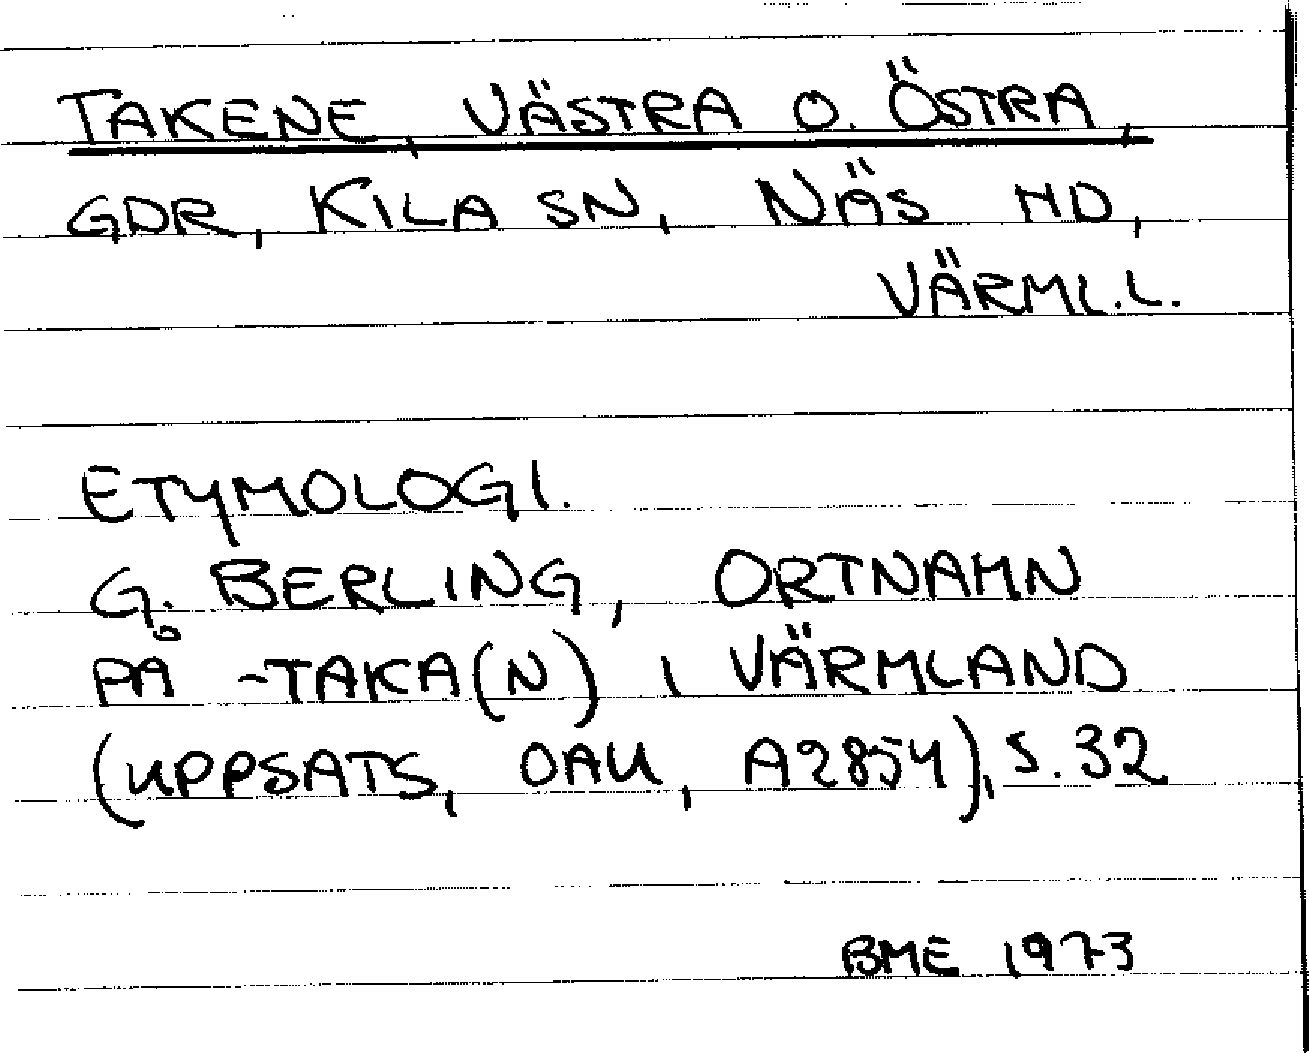 TAKENE, VÄSTRA O. ÖSTRA,
GDR, KILA SN, NÄS HD,
VÄRML.L.
ETYMOLOGI.
G. BERLING, ORTNAMN
PÅ -TAKA(N) I VÄRMLAND
(UPPSATS, OAU, A2854), S. 32
BME 1973